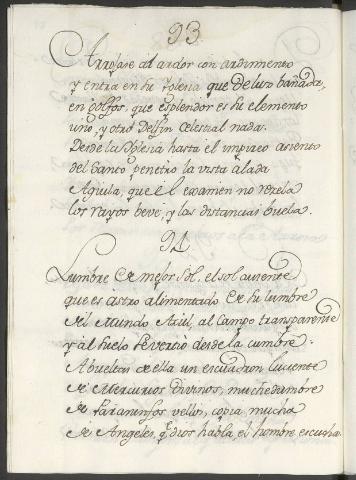 93.
Arrojase al ardor con ardimento
y entra en su Iglesia que de luz bañada,
en golfos, que esplendor es su elemento
vino, y otro Delfin Celestial nada.
Desde la Iglesia hasta el impireo asiento
del Santo penetrò la vista alada
Aguila, que el examen no rezela
los rayos beve, y las distancias buela.
94.
Lumbre de mejor Sol, el sol ausente
que es astro alimentado de su lumbre
del Mundo Azul, al Campo transparente
y al suelo se vertiò desde la cumbre.
A bueltas de ella un escuadron luciente
de Mercurios Divinos, muchedumbre
de Paraninfos vellos, copia mucha
de Angeles, q̃ dios habla, el hombre escucha.